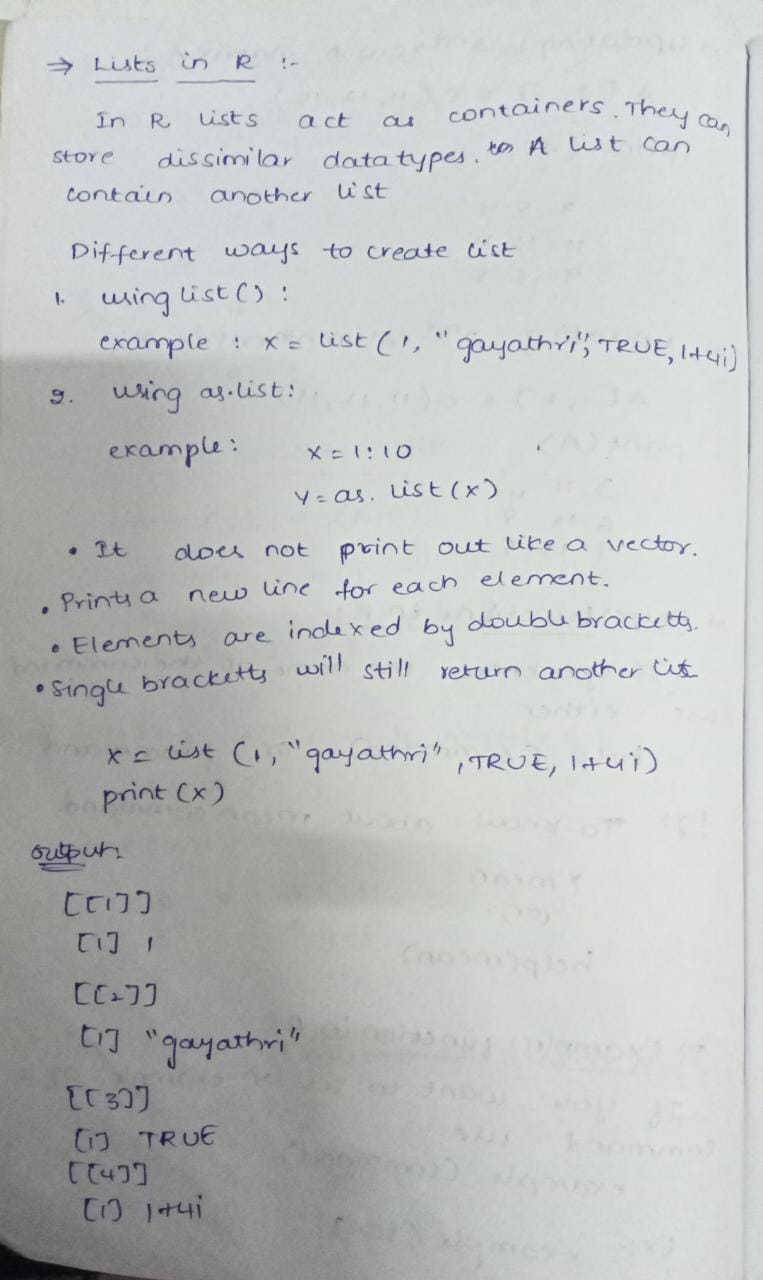 ⇒ Lists in R :-
In R lists act as containers. They can
store dissimilar datatypes. A list can
contain another list
Different ways to create list
1. using list() :
example : x = list (1, "gayathri", TRUE, 1+4i)
2. using as.list:
example: x = 1:10
y = as. list(x)
• It does not print out like a vector.
• Prints a new line for each element.
• Elements are indexed by double bracketts.
• single bracketts will still return another list
x = list (1, "gayathri", TRUE, 1+4i)
print (x)
output:
[[1]]
[1] 1
[[2]]
[1] "gayathri"
[[3]]
[1] TRUE
[[4]]
[1] 1+4i